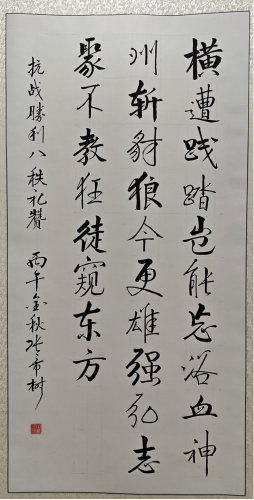 横遭践踏岂能忘浴血神
州斩豺狼今更雄强弘志
聚不教狂徒窥东方
抗战勝利八秩礼赞 丙午金秋张希树